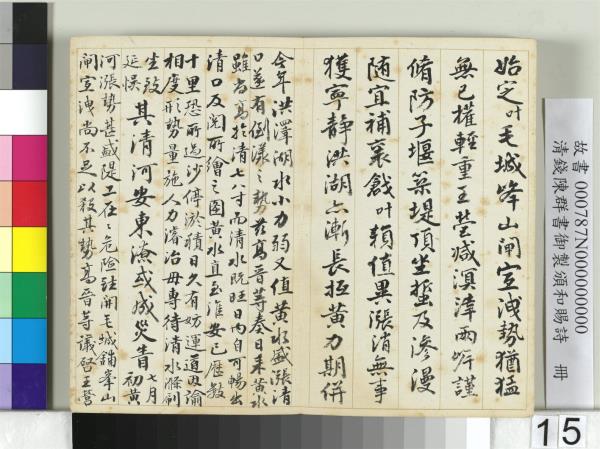 始定叶毛城峰山閘宣洩勢猶猛
無已權輕重王營減溟漳兩岸謹
脩防子堰築堤頂坐蟄及滲漫
隨宜補裹戧叶賴值異漲消無事
獲寧靜洪湖亦漸長抵黃力期併
今年洪澤湖水小力弱又值黃水盛漲清
口遂有倒漾之勢茲高晉等奏日來黃水
雖尚高於清七八寸而清水既旺日內自可暢出
清口及閱所繪之圖黃水直至淮安已歷數
十里恐所過沙停淤積日久有妨運道因諭
相度形勢量施人力濬治毋專待清水滌刷
坐致
延悞
其清河安東潦或成災眚
七月
初黃
河漲勢甚盛隄工在在危險開毛城鋪峯山
閘宣洩尚不足以殺其勢高晉等議啓王營
故書 000787N000000000
清錢陳群書御製頒和賜詩 冊
15